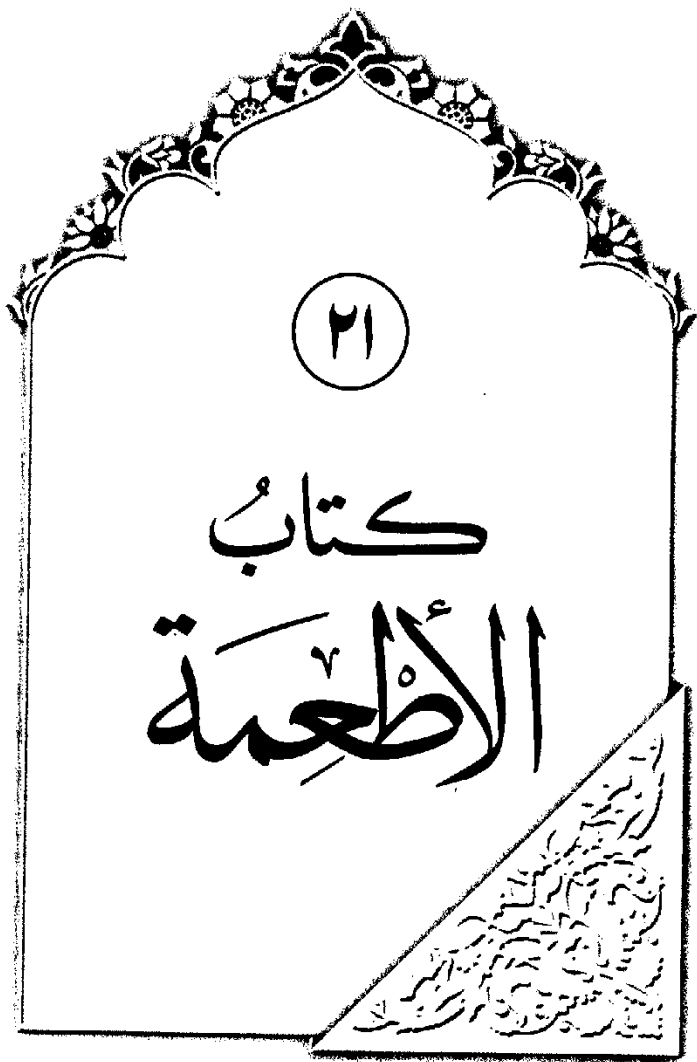 ٢١
كتابُ
الأطْعِمَة